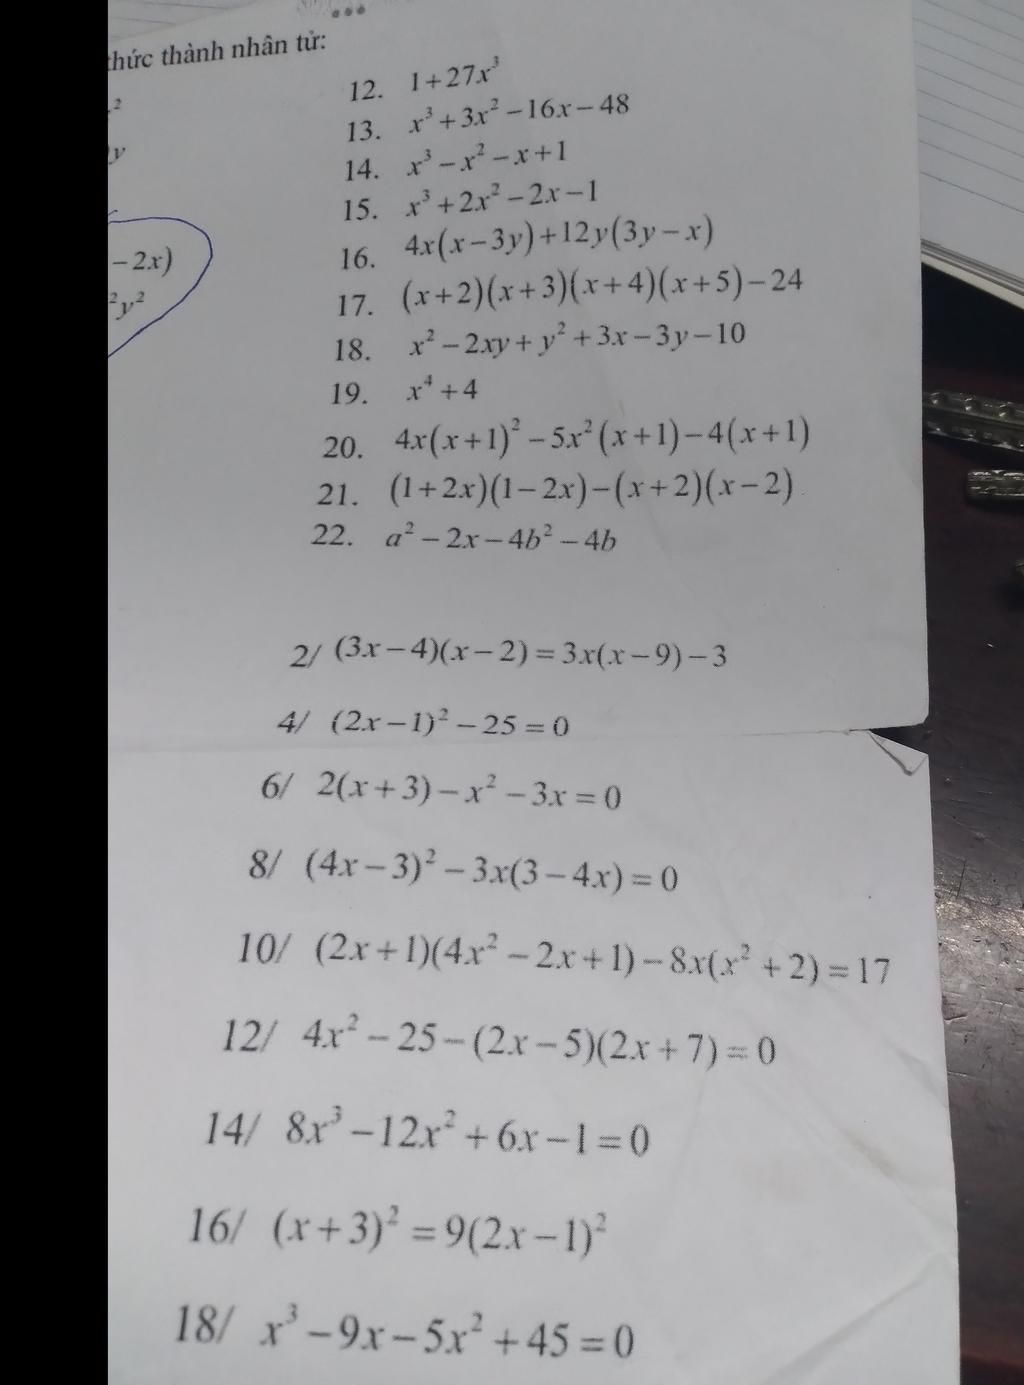 thức thành nhân tử:
²
y
12. 1+27x³
13. x³+3x²−16x−48
14. x³−x²−x+1
15. x³+2x²−2x−1
−2x)
16. 4x(x−3y)+12y(3y−x)
²y²
17. (x+2)(x+3)(x+4)(x+5)−24
18. x²−2xy+y²+3x−3y−10
19. x⁴+4
20. 4x(x+1)²−5x²(x+1)−4(x+1)
21. (1+2x)(1−2x)−(x+2)(x−2)
22. a²−2x−4b²−4b
2/ (3x−4)(x−2)=3x(x−9)−3
4/ (2x−1)²−25=0
6/ 2(x+3)−x²−3x=0
8/ (4x−3)²−3x(3−4x)=0
10/ (2x+1)(4x²−2x+1)−8x(x²+2)=17
12/ 4x²−25−(2x−5)(2x+7)=0
14/ 8x³−12x²+6x−1=0
16/ (x+3)²=9(2x−1)²
18/ x³−9x−5x²+45=0